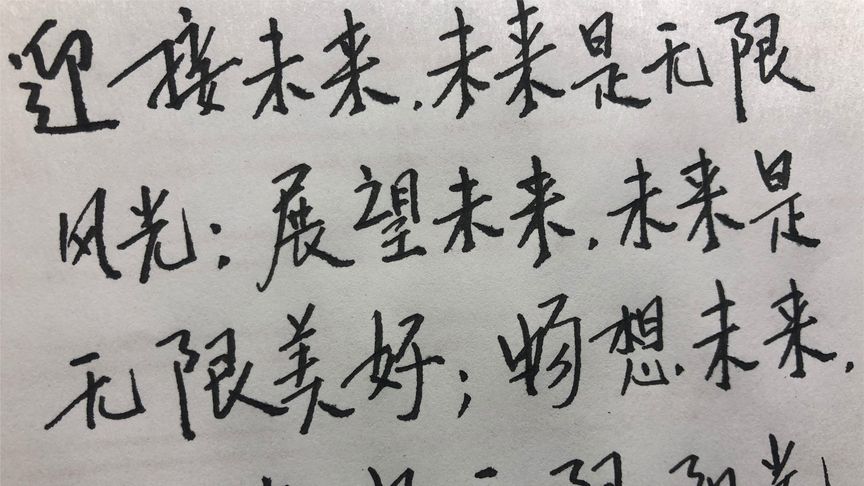 迎接未来,未来是无限
风光;展望未来,未来是
无限美好;畅想未来,